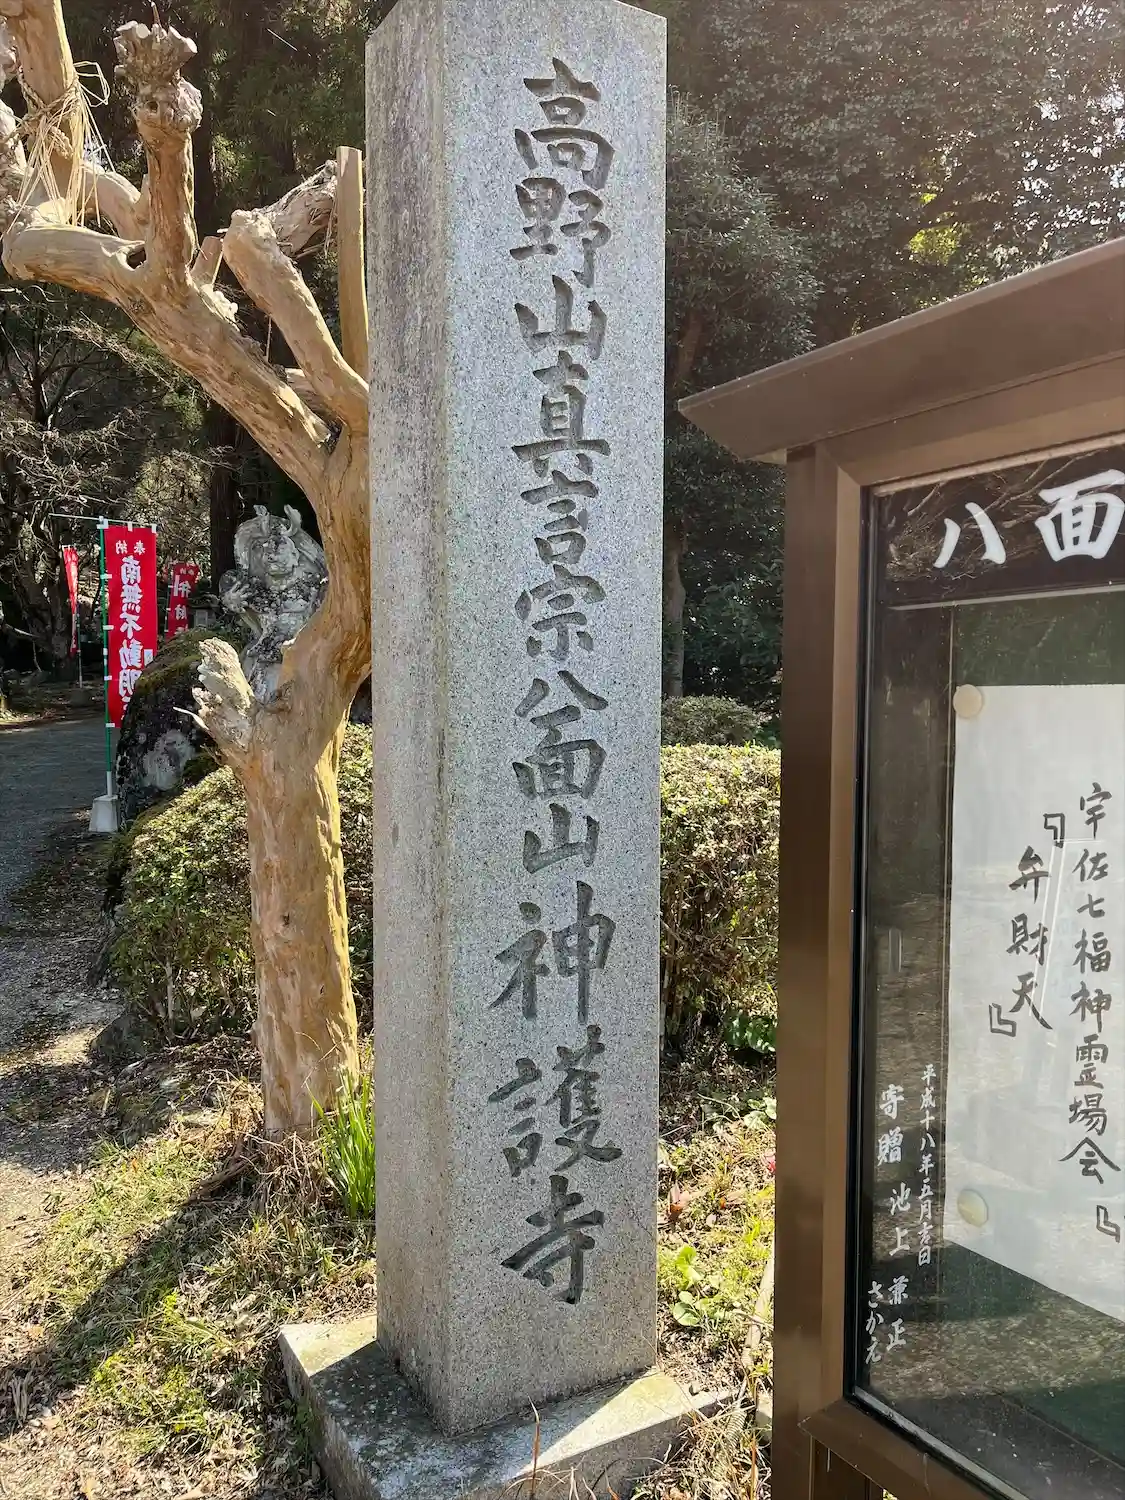 高野山真言宗八面山神護寺
八面
宇佐七福神霊場会
『弁財天』
平成十八年五月吉日
寄贈 池上 兼正
さかえ
奉納
南無不動明